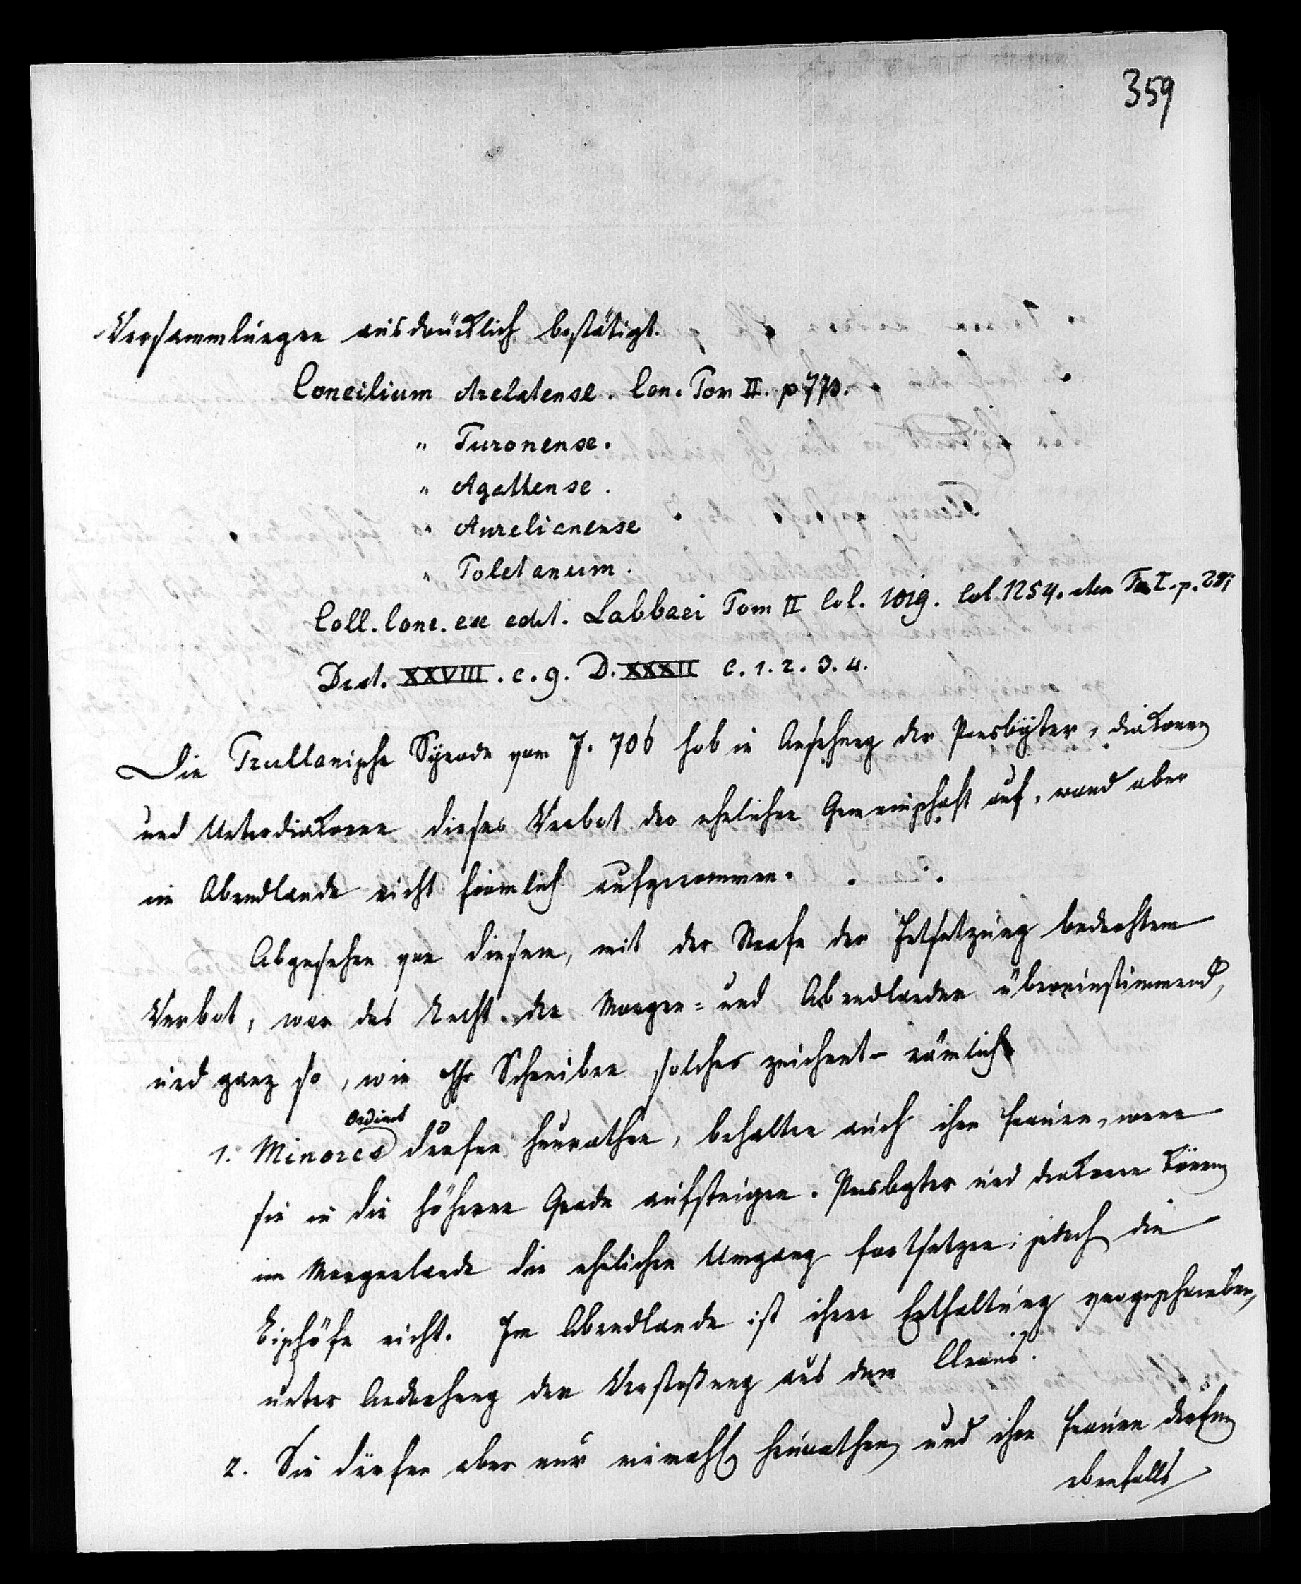 359
Versammlungen ausdrücklich bestätigt.
Concilium Arelatense. Con. Tom II. p 770.
" Turonense.
" Agathense.
" Aurelianense
" Toletanum.
Coll. Conc. ex edit. Labbaei Tom II Col. 1019. Col. 1254. Tom I. p.
Dist. XXVIII. c. 9. D. XXXII c. 1. 2. 3. 4.
Die Trullanische Synode vom J. 706 hob in Ansehung der Presbyter, Diakonen
und Unterdiakonen dieses Verbot der ehelichen Gemeinschaft auf, ward aber
im Abendlande nicht förmlich aufgenommen.
Abgesehen von diesem, mit der Strafe der Entsetzung bedrohtem
Verbot, war das Recht der Morgen- und Abendländer übereinstimmend,
und ganz so, wie Ihr Schreiben solches zeichnet - nämlich
1. Minores Ordines dürfen heurathen, behalten auch ihre Frauen, wenn
sie in die höheren Grade aufsteigen. Presbyter und Diakone können
im Morgenlande den ehelichen Umgang fortsetzen; jedoch die
Bischöfe nicht. Im Abendlande ist ihnen Enthaltung vorgeschrieben,
unter Androhung der Verstoßung aus dem Clerus.
2. Sie dürfen aber nur einmahl heurathen, und ihre Frauen dürfen
ebenfalls